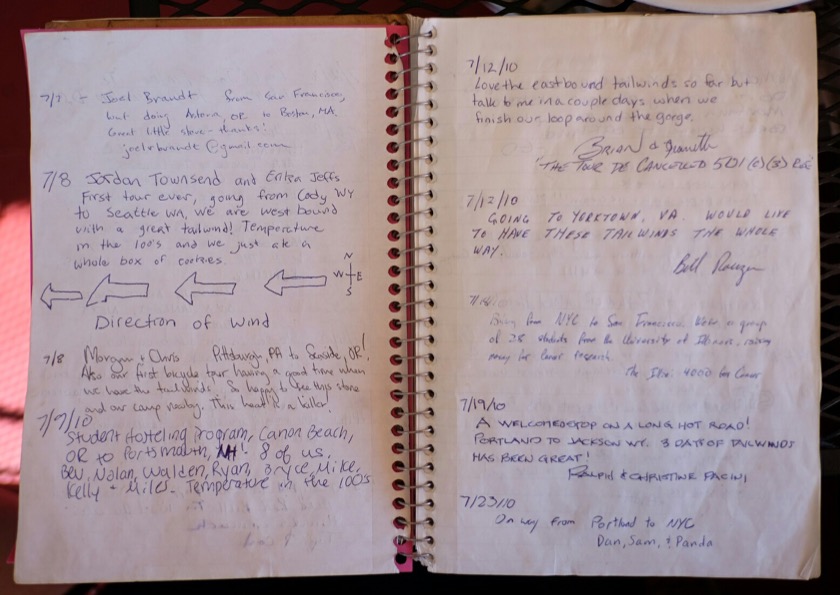 7/7 - Joel Brandt from San Francisco,
but doing Astoria, OR to Boston, MA.
Great little store - thanks!
joelrbrandt@gmail.com
7/8 Jordan Townsend and Erika Jeffs
First tour ever, going from Cody WY
to Seattle WA, we are west bound
with a great tailwind! Temperature
in the 100's and we just ate a
whole box of cookies.
N
W E
S
Direction of Wind
7/8 Morgan & Chris Pittsburgh, PA to Seaside, OR!
Also our first bicycle tour having a good time when
we have the tailwinds! So happy to see this store
and our camp nearby. This heat is a killer.
7/7/10
Student Hosteling Program, Canon Beach,
OR to Portsmouth, NH! 8 of us.
Bev, Nolan, Walden, Ryan, Bryce, Mike,
Kelly + Miles. Temperature in the 100's
7/12/10
Love the eastbound tailwinds so far but
talk to me in a couple days when we
finish our loop around the gorge.
Brian &
"The Tour de Cancered 501(c)(3)
7/17/10
GOING TO YORKTOWN, VA. WOULD LIKE
TO HAVE THESE TAILWINDS THE WHOLE
WAY.
Bill
from NYC to San Francisco. We're a group
of 28 students from the University of Illinois, raising
money for cancer research.
The Illini 4000 for Cancer
7/19/10
A WELCOMED STOP ON A LONG HOT ROAD!
PORTLAND TO JACKSON WY. 3 DAYS OF TAILWINDS
HAS BEEN GREAT!
RALPH & CHRISTINE PACINI
7/23/10
On way from Portland to NYC
Dan, Sam, & Panda